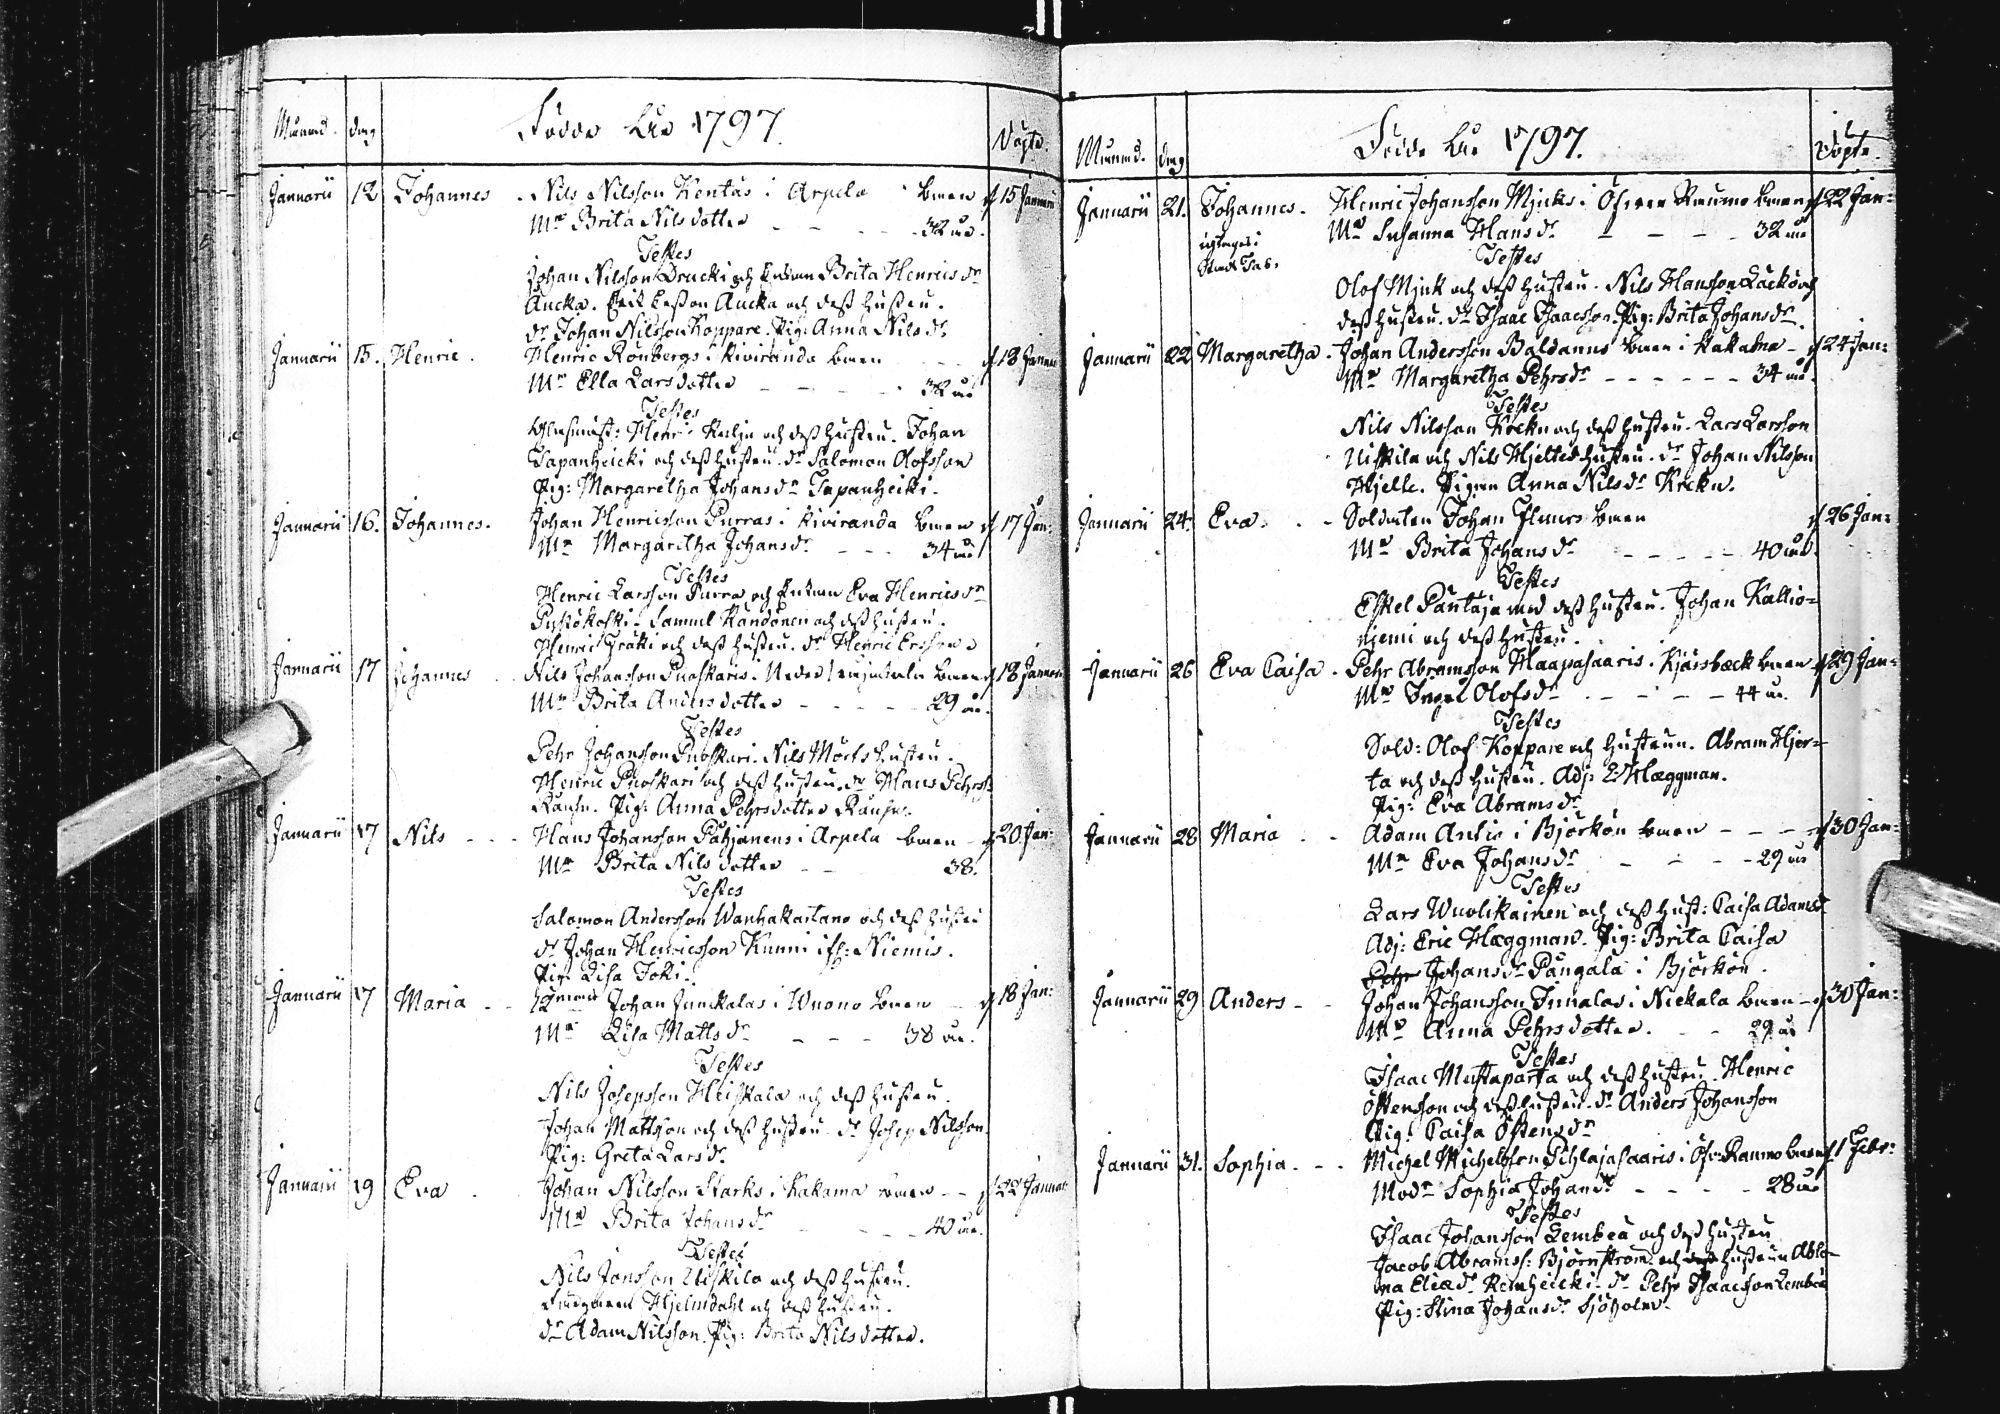 Månad. dag Födde År 1797. Döpte.
Januarii 12 Johannes. Nils Nilsson Kentäs i Arpela barn d 15 Januarii
Mr Brita Nils dotter 32 år.
Testes
Johan Nilsson Drucki och Enkan Brita Henrics dr
Aucka. Erik Ersson Aucka och dess hustru.
dr Johan Nilsson Koppare. Pig: Anna Nils dr
Januarii 15. Henric. Henric Rönbergs i Kiviranda barn d 18 Januarii
Mr Ella Lars dotter 32 år
Testes
Henr: och dess hustru. Johan
Tapanheicki och dess hustru. dr Salomon Olofsson
Pig: Margaretha Johans dr Tapanheicki.
Januarii 16. Johannes. Johan Henricsson Purras i Kiviranda barn d 17 Jan:
Mr Margaretha Johans dr 34 år
Testes
Henric Larsson Purra och Enkan Eva Henrics dr
Samuel Kandonen och dess hustru.
Henric och dess hustru. dr Henric Ersson
Januarii 17 Johannes Nils Johansson Puoskaris i Neder barn d 18 Januarii
Mr Brita Anders dotter 29 år.
Testes
Pehr Johansson Puoskari. Nils Mörts hustru.
Henric Puoskari och dess hustru. dr Hans Pehrss:
Rauhu. Pig: Anna Pehrs dotter Rauhu.
Januarii 17 Nils Hans Johansson Pähjänens i Arpela barn d 20 Jan:
Mr Brita Nils dotter 38.
Testes
Salomon Andersson Wanhakartano och dess hustru
dr Johan Henricsson Kunni Niemis.
Pig: Lisa Joki.
Januarii 17 Maria Johan Junckalas i Wuono barn d 18 Jan:
Mr Lisa Matts dr 38 år.
Testes
Nils Josepsson Heiskala och dess hustru.
Johan Mattsson och dess hustru. dr Josep Nilsson
Pig: Greta Lars dr
Januarii 19 Eva Johan Nilsson Starks i Kakama barn d 22 Januarii
Mr Brita Johans dr 40 år.
Testes
Nils Jonsson Uiskila och dess hustru.
Hjelmdahl och dess hustru.
dr Adam Nilsson. Pig: Brita Nils dotter.
Månad. dag Födde År 1797. Döpte.
Januarii 21. Johannes. Henric Johansson Mjuks i Öfver Raumo barn d 22 Jan:
Mr Susanna Hans dr 32 år
Testes
Olof Mjuk och dess hustru. Nils Hansson Lackö och
dess hustru. dr Isaac Isaacsson. Pig: Brita Johans dr.
Januarii 22 Margaretha. Johan Andersson Baldanus barn i Kakama d 24 Jan:
Mr Margaretha Pehrs dr 34 år.
Testes
Nils Nilsson Krekn och dess hustru. Lars Larsson
Uiskila och Nils Hjeltes hustru. dr Johan Nilsson
Hjelte. Pigan Anna Nils dr Krekn.
Januarii 24. Eva. Soldaten Johan barn d 26 Jan:
Mr Brita Johans dr 40 år.
Testes
Eskel Pantaja med dess hustru. Johan Kallio-
niemi och dess hustru.
Januarii 26 Eva Caisa. Pehr Abramsson Haapasaaris i Kjärsbäck barn d 29 Jan:
Mr Ingel Olofs dr 44 år.
Testes
Sold: Olof Koppare och hustrun. Abram Hjer-
ta och dess hustru. Adj: E: Hæggman.
Pig: Eva Abrams dr
Januarii 28 Maria Adam Antis i Björkön barn d 30 Jan:
Mr Eva Johans dr 29 år
Testes
Lars Wuolikainen och dess hust: Caisa Adams dr
Adj: Eric Hæggman. Pig: Brita Caisa
Pehr Johans dr Pangala i Björkön.
Januarii 29 Anders Johan Johansson Innalas i Nickala barn d 30 Jan:
Mr Anna Pehrs dotter. 29 år
Testes
Isaac Mustaparta och dess hustru. Henric
Östensson och dess hustru. dr Anders Johansson
Pig: Caisa Östens dr
Januarii 31. Sophia. Michel Michelsson Pihlajasaaris i Öfv: Raumo barn d 1 Febr:
Modr Sophia Johans dr 28 år
Testes
Isaac Johansson Lembea och dess hustru
Jacob Abramss: Björnström och dess hustru Abla-
na Elias dr Keinheicki. dr Pehr Isaacsson Lembea
Pig: Stina Johans dr Sjöholm.